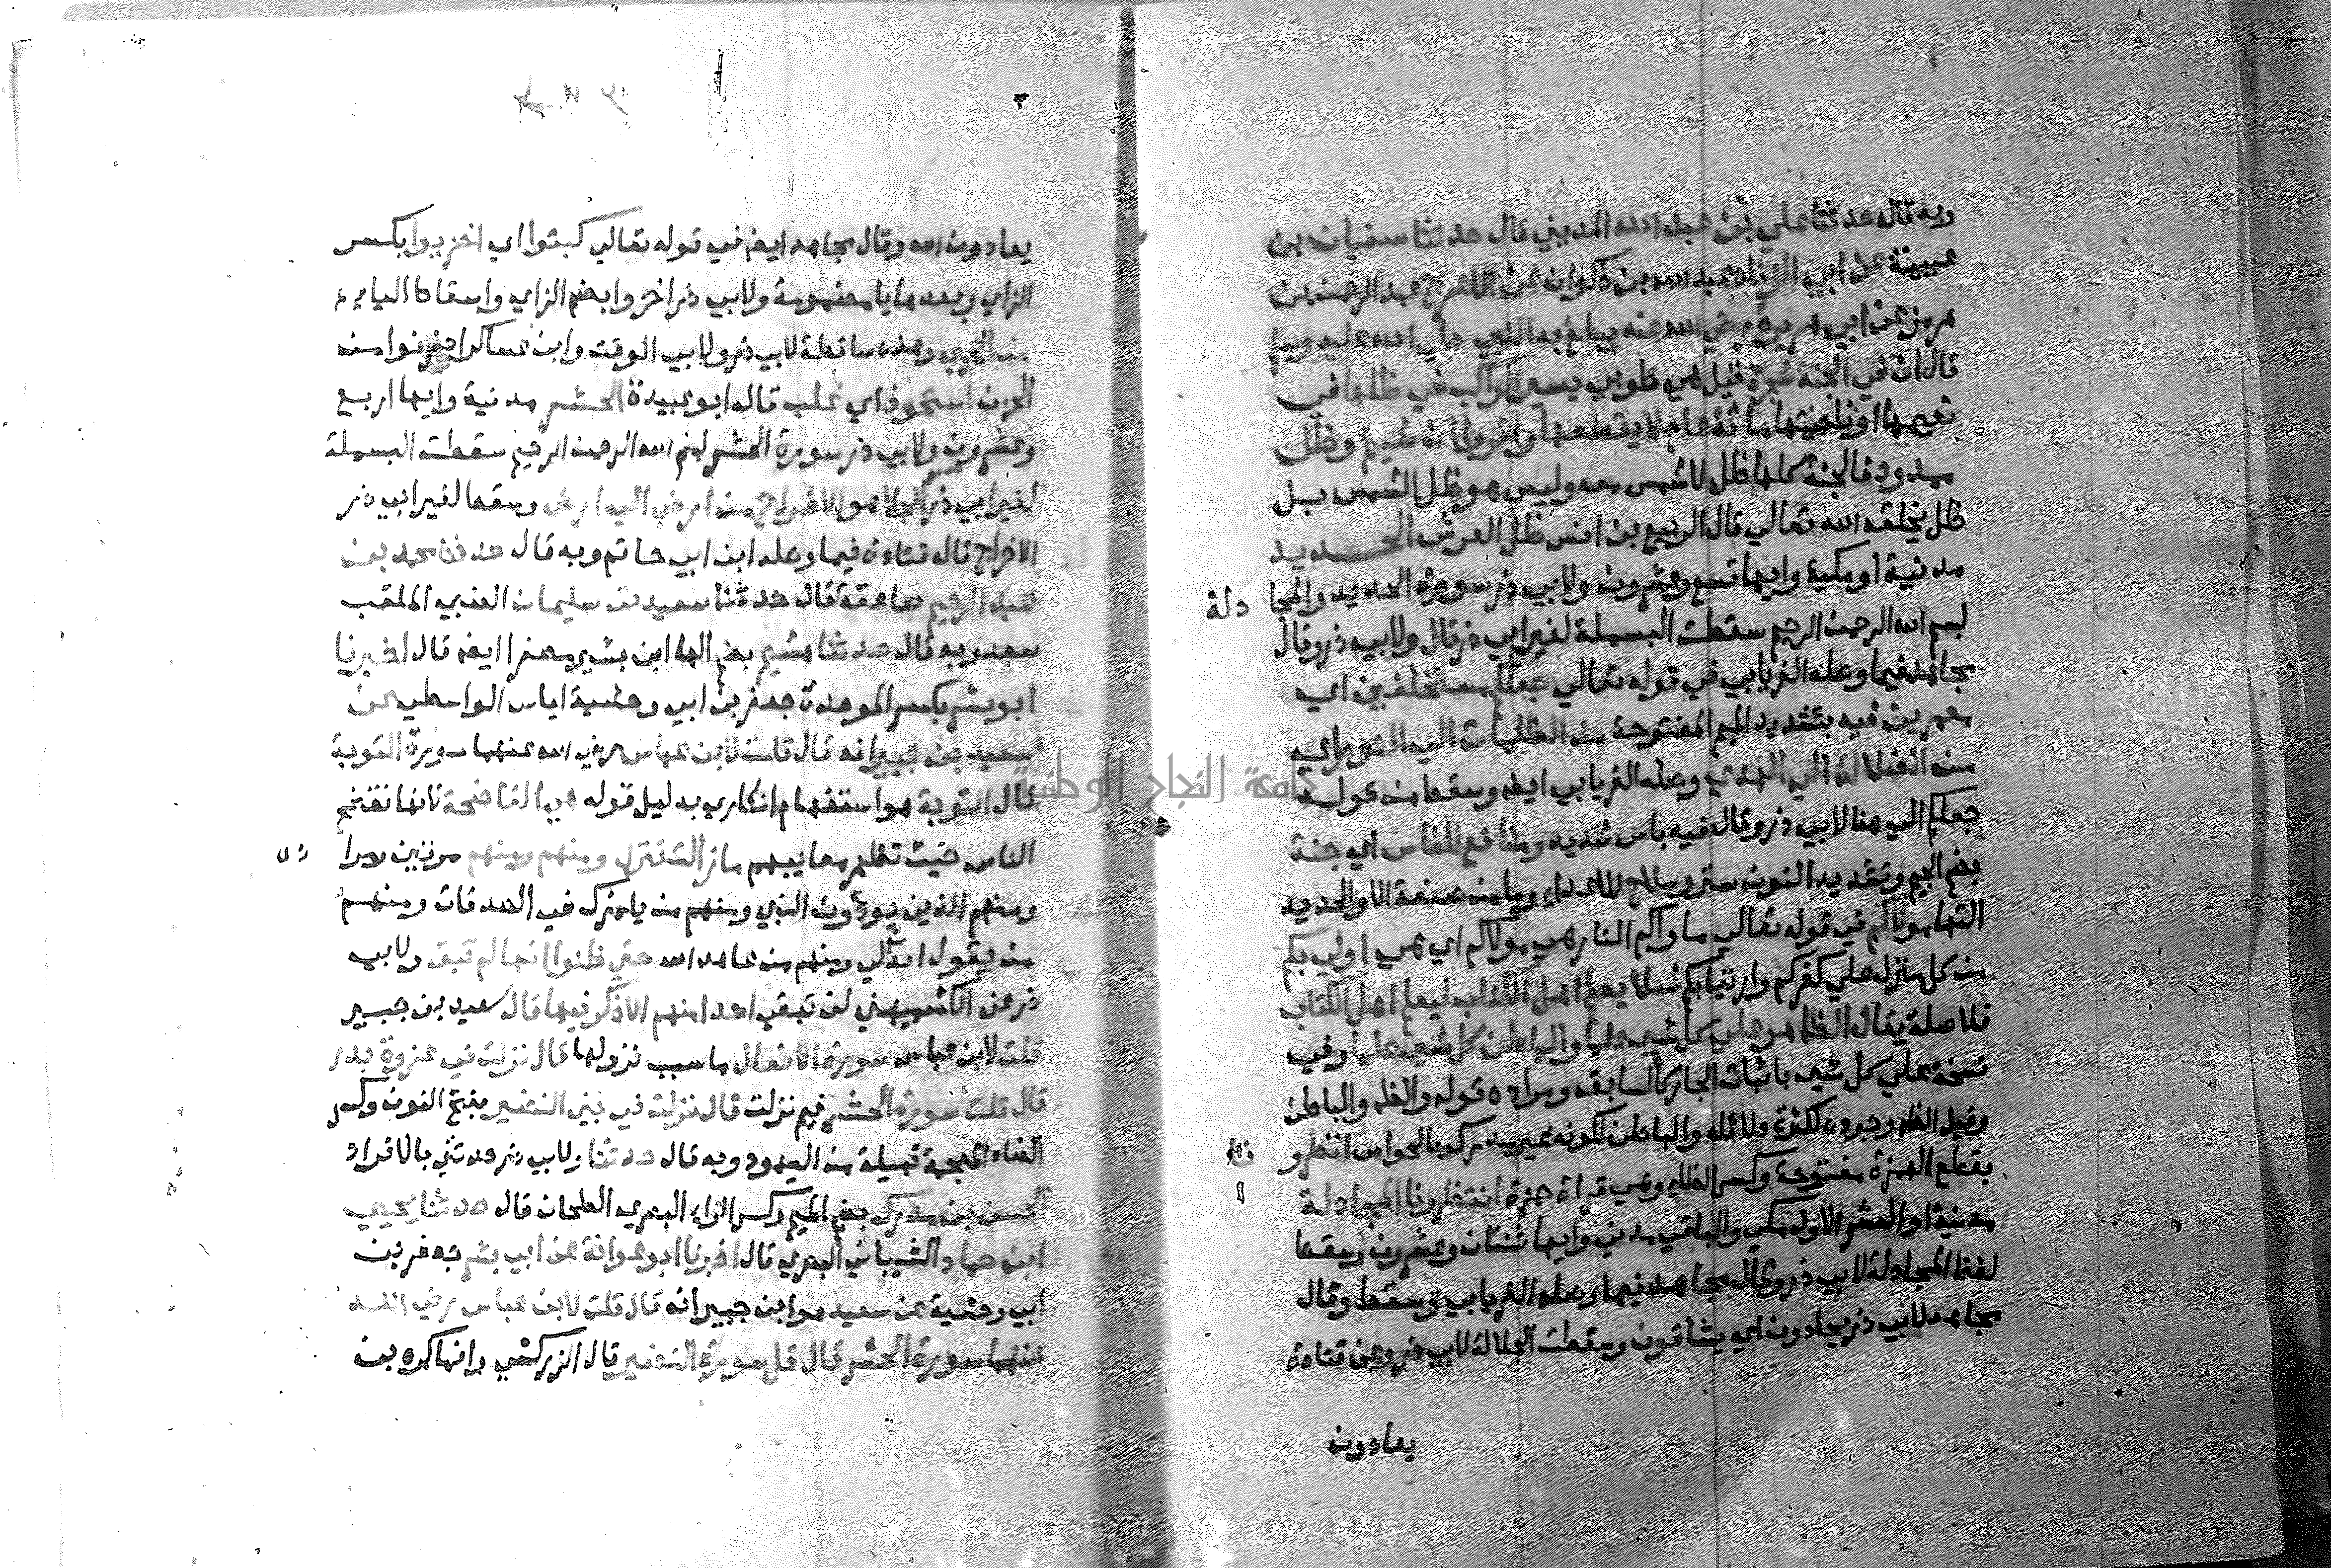 وبه قال حدثنا علي بن عبد الله المديني قال حدثنا سفيان بن
عيينة عن ابي الزناد عبد الله بن ذكوان عن الاعرج عبد الرحمن بن
هرمز عن ابي هريرة رضي الله عنه يبلغ به النبي صلي الله عليه وسلم
قال ان في الجنة شجرة قيل هي طوبي يسير الراكب في ظلها في
نعيمها او ناحيتها مائة عام لا يقطعها واقروا ان شيتم وظل
ممدود فالجنة كلها ظل لا شمس معه وليس هو ظل الشمس بل
ظل يخلقه الله تعالي قال الربيع بن انس ظل العرش الحديد
مدنية او مكية وايها تسع وعشرون ولابي ذر سورة الحديد والمجا دلة
بسم الله الرحمن الرحيم سقطت البسملة لغير ابي ذر قال ولابي ذر وقال
مجاهد فيما وصله الفريابي في قوله تعالي جعلكم مستخلفين اي
معمرين فيه بتشديد الميم المفتوحة من الظلمات الي النور اي
من الضلالة الي الهدي وصله الفريابي ايضا وسقط من قوله
جعلكم الي هنا لابي ذر وقال فيه باس شديد ومنافع للناس اي جنة
بضم الجيم وتشديد النون ستر وسلاح للاعداء وما من صنعة الا والحديد
التها مولاكم في قوله تعالي ماواكم النار هي مولاكم اي هي اولي بكم
من كل منزل علي كفركم وارتيابكم ليلا يعلم اهل الكتاب ليعلم اهل الكتاب
فلا صلة يقال الظاهر علي كل شي علما والباطن كل شي علما وفي
نسخة علي كل شي باثبات الجار كالسابقه ومراده قوله والظاهر والباطن
وقيل الظاهر وجوده لكثرة دلائله والباطن لكونه غير مدرك بالحواس انظرو نا
بقطع الهمزة مفتوحة وكسر الظاء وهي قراة حمزة انتظرونا المجادلة
مدنية او العشر الاول مكي والباقي مدني وايها ثنتان وعشرون وسقط
لفظ المجادلة لابي ذر وقال مجاهد فيما وصله الفريابي وسقط وقال
مجاهد لابي ذر يحادون اي يشاقون وسقطت الجلالة لابي ذر وعن قتادة
يعادون
يعادون الله وقال مجاهد ايضا في قوله تعالي كبتوا اي اخزيوا بكسر
الزاي وبعدها يا مضمومة ولابي ذر اخزوا بضم الزاي واسقاط الياء
من الخزي وهذه ساقطة لابي ذر ولابي الوقت وابن عساكر احزنوا من
الحزن استحوذ اي غلب قاله ابو عبيدة الحشر مدنية وايها اربع
وعشرون ولابي ذر سورة الحشر بسم الله الرحمن الرحيم سقطت البسملة
لغير ابي ذر الجلا هو الاخراج من ارض الي ارض وسقط لغير ابي ذر
الاخراج قاله قتادة فيما وصله ابن ابي حاتم وبه قال حدثنا محمد بن
عبد الرحيم صاعقة قال حدثنا سعيد بن سليمان الضبي الملقب
سعدويه قال حدثنا هشيم بضم الها ابن بشير مصغرا ايضا قال اخبرنا
ابو بشر بكسر الموحدة جعفر بن ابي وحشية اياس الواسطي عن
سعيد بن جبير انه قال قلت لابن عباس رضي الله عنهما سورة التوبة
قال التوبة هو استفهام انكاري بدليل قوله هي الفاضحة لانها تفضح
الناس حيث تظهر معايبهم ما زالت تنزل ومنهم ومنهم مرتين
ومنهم الذين يوذون النبي ومنهم من يلمزك في الصدقات ومنهم
من يقول ائذن لي ومنهم من عاهد الله حتي ظنوا انها لم تبق ولابي
ذر عن الكشميهني لن تبقي احدا منهم الا ذكر فيها قال سعيد بن جبير
قلت لابن عباس سورة الانفال ما سبب نزولها قال نزلت في غزوة بدر
قال قلت سورة الحشر فيم نزلت قال نزلت في بني النضير بفتح النون وكسر
الضاد المعجمة قبيلة من اليهود وبه قال حدثنا ولابي ذر حدثني بالافراد
الحسن بن مدرك بضم الميم وكسر الراء البصري الطحان قال حدثنا يحيي
ابن حماد الشيباني البصري قال اخبرنا ابو عوانة عن ابي بشر جعفر بن
ابي وحشية عن سعيد هو ابن جبير انه قال قلت لابن عباس رضي الله
عنهما سورة الحشر قال قل سورة النضير قال الزركشي وانها كره بن
جامعة النجاح الوطنية